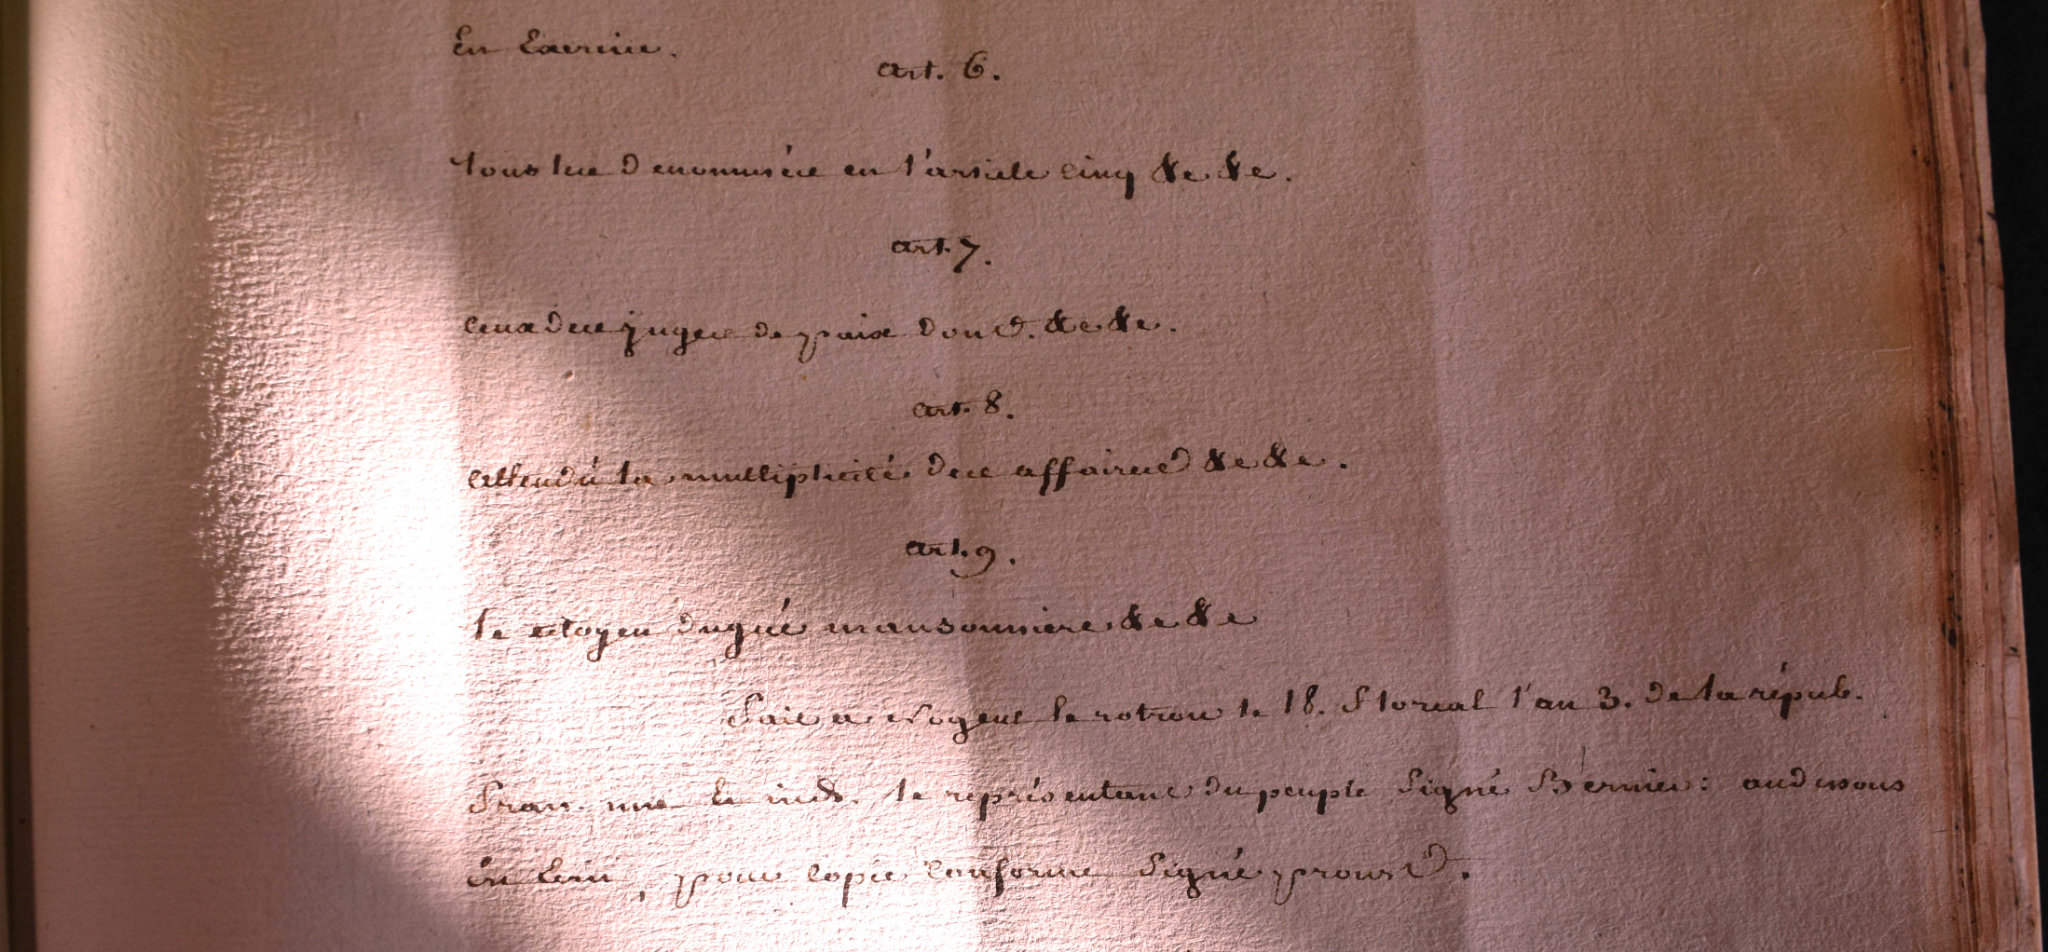 En Exercice.
art. 6.
tous les denommés en l'article cinq &e &e.
art. 7.
ceux des juges de paix dont. &e &e.
art. 8.
attendu la multiplicité des affaires &e &e.
art. 9.
le citoyen dugué mansonniere &e &e
Fait a Nogent le rotrou le 18. floreal l'an 3. de la répub.
fran. une et ind. le représentant du peuple Signé Bernier: audessous
Est Ecrit, pour copie conforme Signé proust.